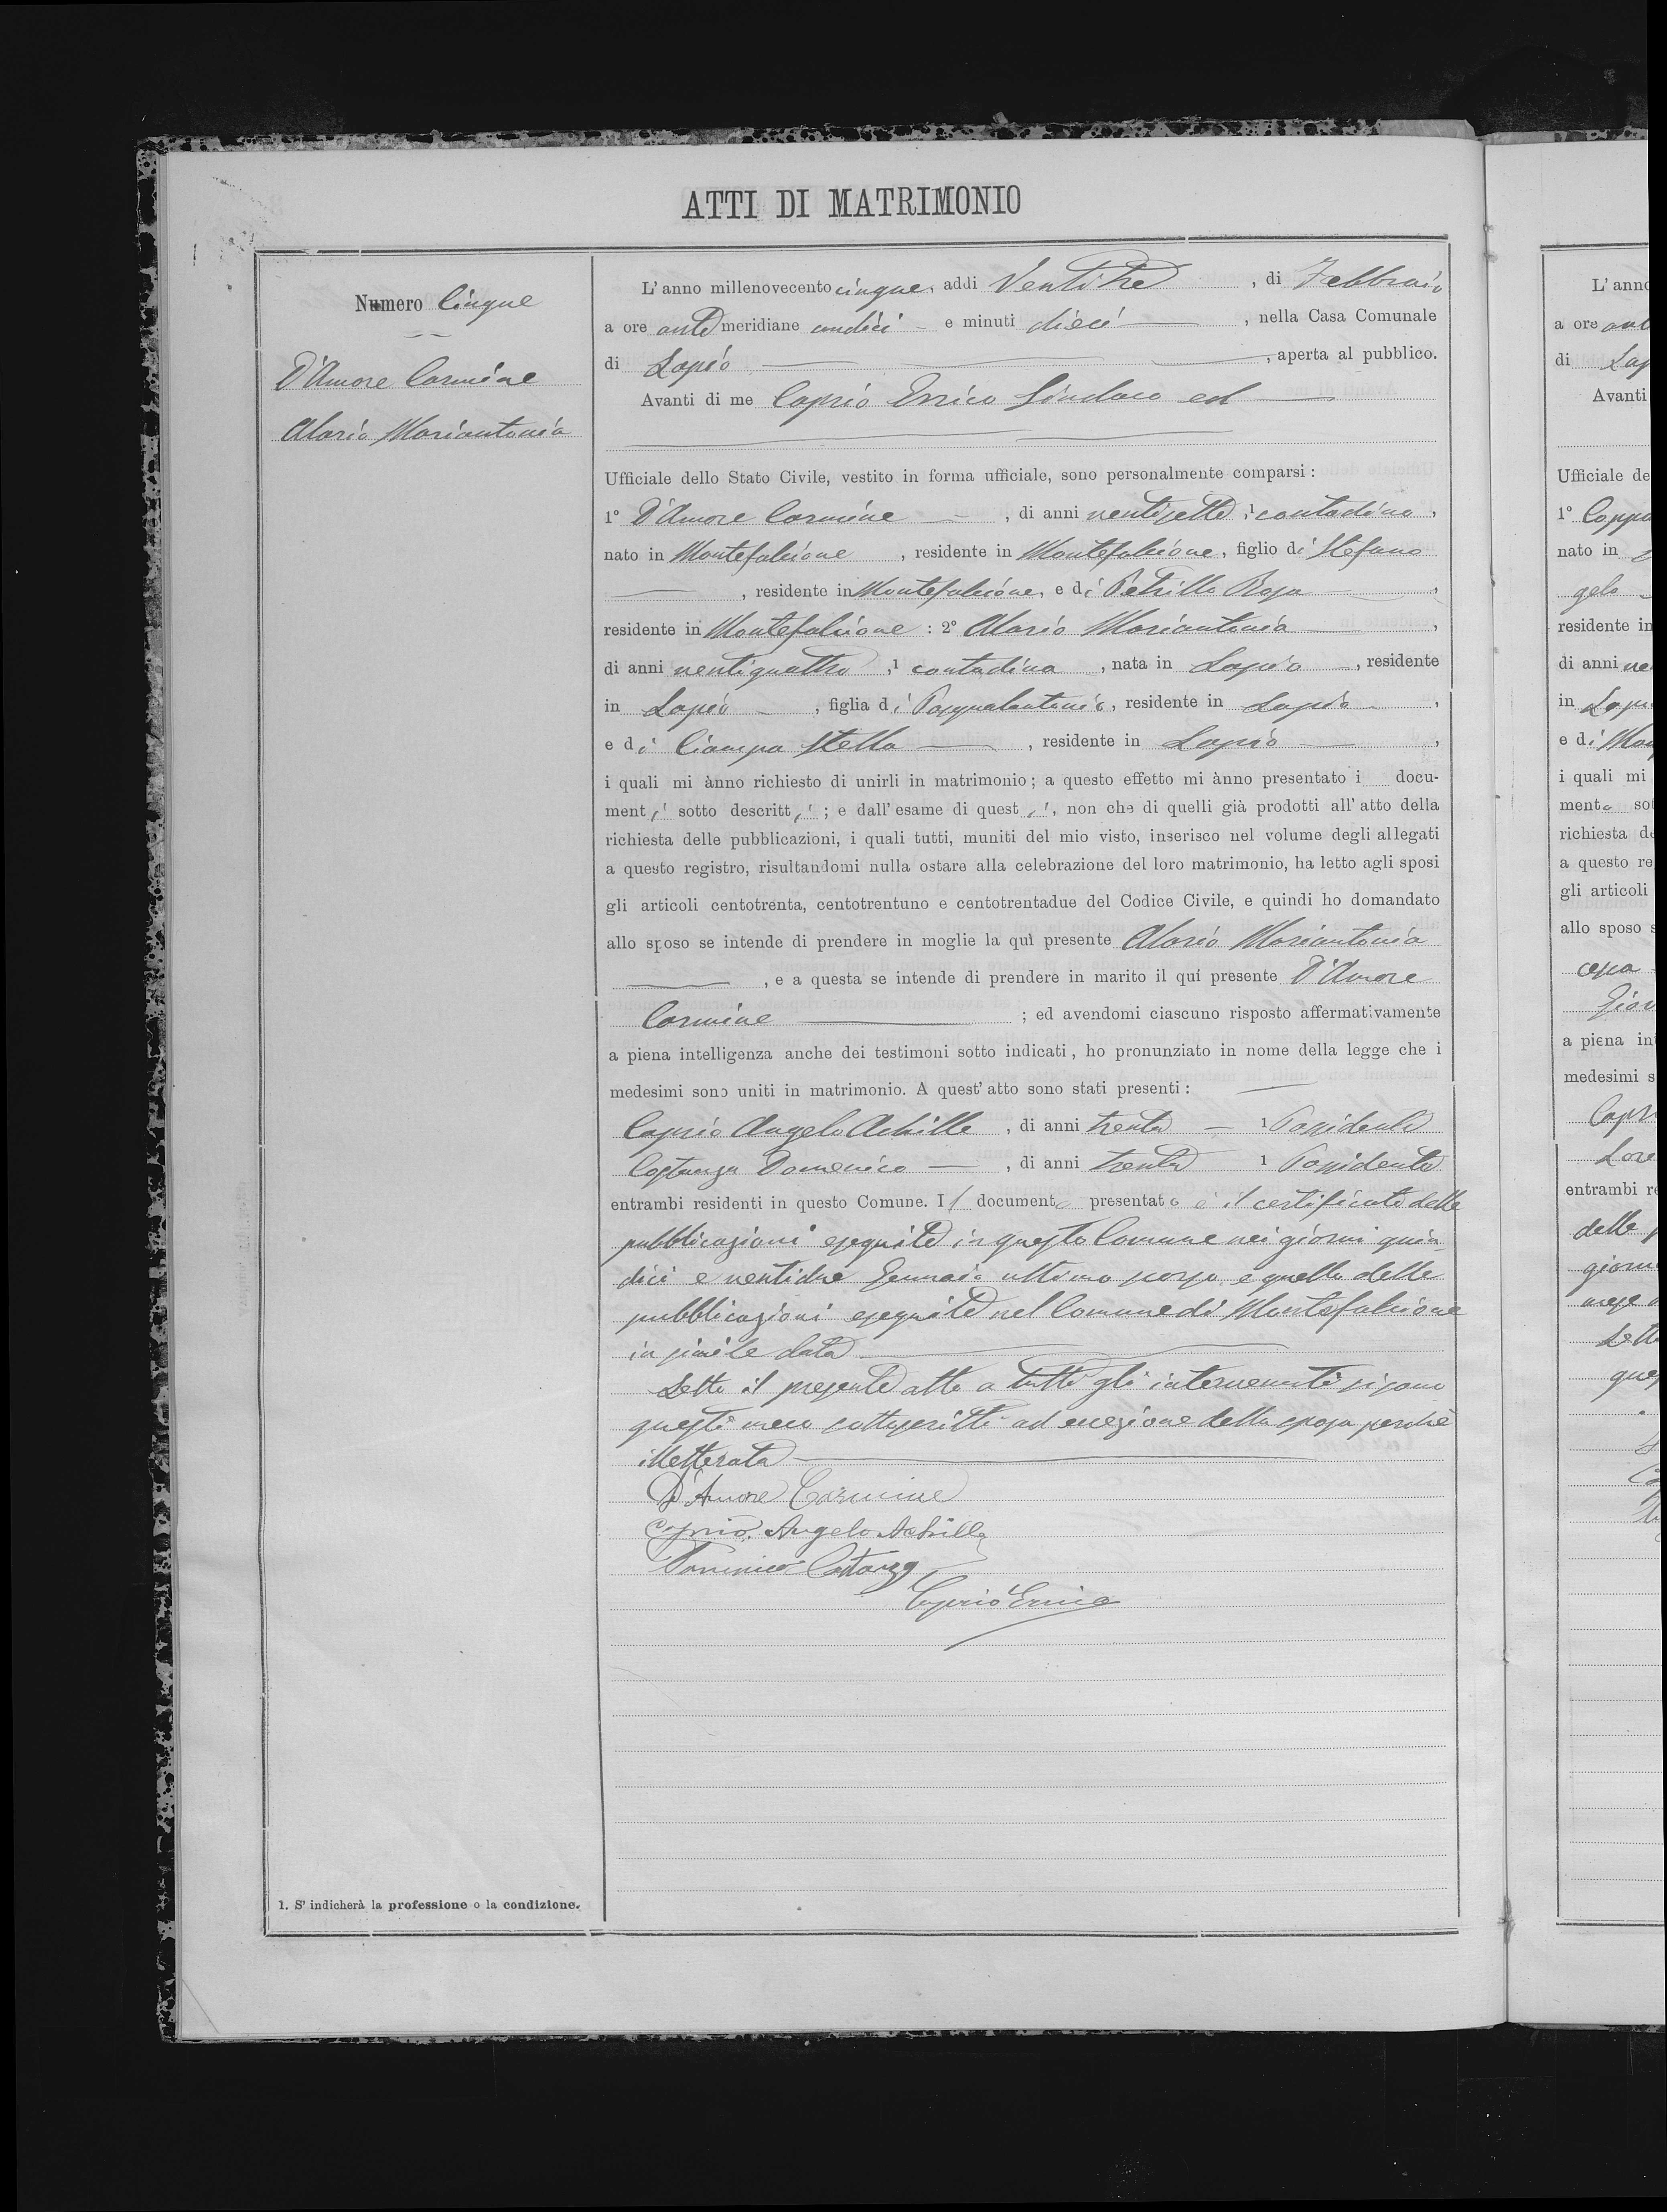 ATTI DI MATRIMONIO
Numero Cinque
D'Amore Carmine
Alario Mariantonia
L'anno millenovecento cinque, addi Ventitre, di Febbraio
a ore antemeridiane undici e minuti dieci, nella Casa Comunale
di Lapio, aperta al pubblico.
Avanti di me Caprio Errico Sindaco ed
Ufficiale dello Stato Civile, vestito in forma ufficiale, sono personalmente comparsi:
1° D'Amore Carmine, di anni ventisette, 1 contadino,
nato in Montefalcione, residente in Montefalcione, figlio di Stefano
, residente in Montefalcione, e di Petrillo Rosa,
residente in Montefalcione: 2° Alario Mariantonia,
di anni ventiquattro, 1 contadina, nata in Lapio, residente
in Lapio, figlia di Pasqualantonio, residente in Lapio,
e di Ciampa Stella, residente in Lapio,
i quali mi ànno richiesto di unirli in matrimonio; a questo effetto mi ànno presentato i docu-
menti sotto descritti; e dall'esame di questi, non che di quelli già prodotti all'atto della
richiesta delle pubblicazioni, i quali tutti, muniti del mio visto, inserisco nel volume degli allegati
a questo registro, risultandomi nulla ostare alla celebrazione del loro matrimonio, ha letto agli sposi
gli articoli centotrenta, centotrentuno e centotrentadue del Codice Civile, e quindi ho domandato
allo sposo se intende di prendere in moglie la quì presente Alario Mariantonia
, e a questa se intende di prendere in marito il quí presente D'Amore
Carmine; ed avendomi ciascuno risposto affermativamente
a piena intelligenza anche dei testimoni sotto indicati, ho pronunziato in nome della legge che i
medesimi sono uniti in matrimonio. A quest'atto sono stati presenti:
Caprio Angelo Achille, di anni trenta 1 Possidente
Costanza Domenico, di anni trenta 1 Possidente
entrambi residenti in questo Comune. Il documento presentato è il certificato delle
pubblicazioni eseguite in questo Comune nei giorni quin-
dici e ventidue Gennaio ultimo scorso e quello delle
pubblicazioni eseguite nel Comune di Montefalcione
in simile data
Letto il presente atto a tutti gli intervenuti si sono
questi meco sottoscritti ad eccezione della sposa perchè
illetterata
D'Amore Carmine
Caprio Angelo Achille
Domenico Costanza
Caprio Errico
1. S'indicherà la professione o la condizione.
L'anno
a ore
di Lap
Avanti
Ufficiale de
1° Coppa
nato in
gelo
residente in
di anni ve
in Lapi
e di
i quali mi
mento sot
richiesta de
a questo re
gli articoli
allo sposo s
Giov
a piena int
medesimi s
Capr
Lore
entrambi re
delle p
giorni
mese
Letto
ques